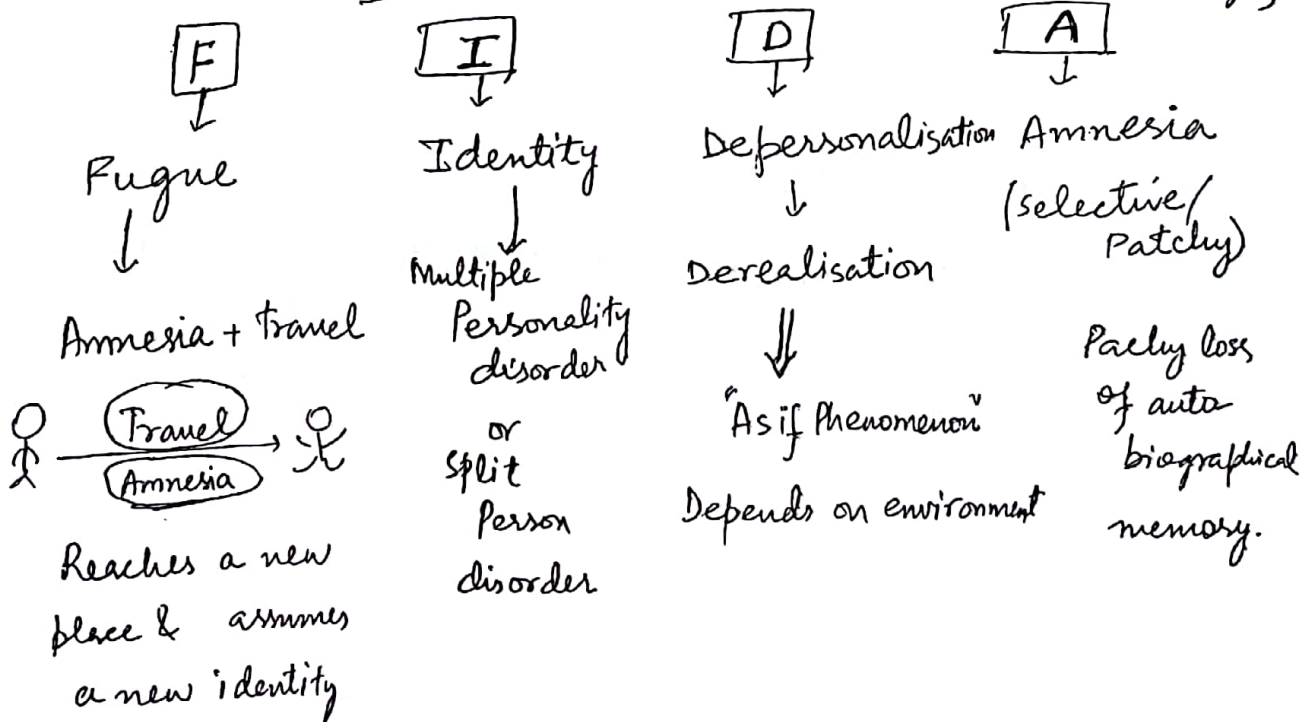 F
Fugue
Amnesia + travel
Travel
Amnesia
Reaches a new
place & assumes
a new identity
I
Identity
Multiple
Personality
disorder
or
Split
Person
disorder
D
Depersonalisation
Derealisation
"As if Phenomenon"
Depends on environment
A
Amnesia
(selective/
Patchy)
Pachy loss
of auto
biographical
memory.